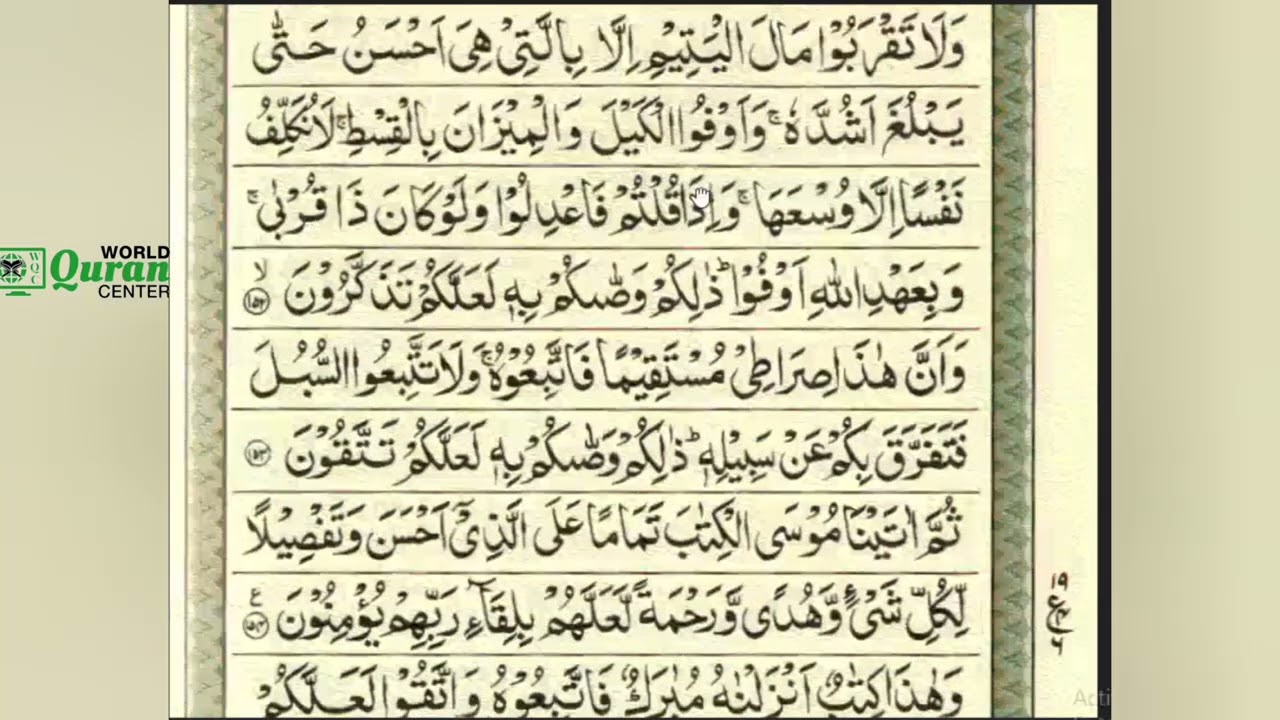 وَلَا تَقْرَبُوْا مَالَ الْيَتِيْمِ اِلَّا بِالَّتِيْ هِيَ اَحْسَنُ حَتّٰى
يَبْلُغَ اَشُدَّهٗ ۚ وَاَوْفُوا الْكَيْلَ وَالْمِيْزَانَ بِالْقِسْطِ ۚ لَا نُكَلِّفُ
نَفْسًا اِلَّا وُسْعَهَا ۚ وَاِذَا قُلْتُمْ فَاعْدِلُوْا وَلَوْ كَانَ ذَا قُرْبٰى ۚ
وَبِعَهْدِ اللّٰهِ اَوْفُوْا ؕ ذٰلِكُمْ وَصّٰىكُمْ بِهٖ لَعَلَّكُمْ تَذَكَّرُوْنَ ۙ ۝۱۵۲
وَاَنَّ هٰذَا صِرَاطِيْ مُسْتَقِيْمًا فَاتَّبِعُوْهُ ۚ وَلَا تَتَّبِعُوا السُّبُلَ
فَتَفَرَّقَ بِكُمْ عَنْ سَبِيْلِهٖ ؕ ذٰلِكُمْ وَصّٰىكُمْ بِهٖ لَعَلَّكُمْ تَتَّقُوْنَ ۝۱۵۳
ثُمَّ اٰتَيْنَا مُوْسَى الْكِتٰبَ تَمَامًا عَلَى الَّذِيْٓ اَحْسَنَ وَتَفْصِيْلًا
لِّكُلِّ شَيْءٍ وَّهُدًى وَّرَحْمَةً لَّعَلَّهُمْ بِلِقَآءِ رَبِّهِمْ يُؤْمِنُوْنَ ۝۱۵۴ ع
۱۹ ع ۶
وَهٰذَا كِتٰبٌ اَنْزَلْنٰهُ مُبٰرَكٌ فَاتَّبِعُوْهُ وَاتَّقُوْا لَعَلَّكُمْ
WORLD
Quran
CENTER
WQC
Acti